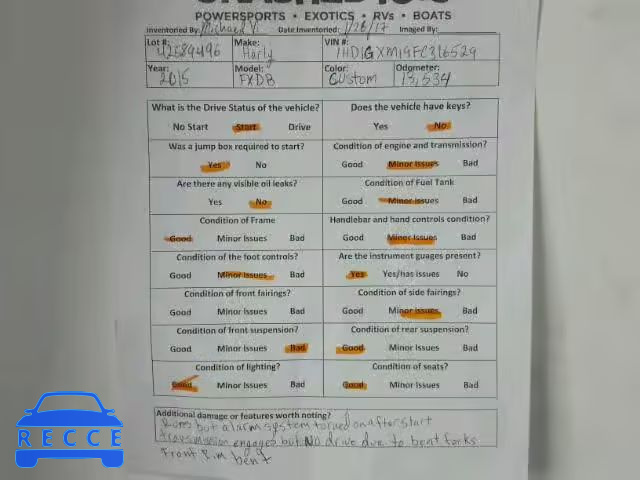 POWERSPORTS • EXOTICS • RVs • BOATS
Inventoried By: Michael V. Date Inventoried: 1/26/17 Imaged By:
Lot #: 42589496 Make: Harly VIN #: 1HD1GXM19FC316529
Year: 2015 Model: FXDB Color: Custom Odometer: 13,534
What is the Drive Status of the vehicle? Does the vehicle have keys?
No Start Start Drive Yes No
Was a jump box required to start? Condition of engine and transmission?
Yes No Good Minor Issues Bad
Are there any visible oil leaks? Condition of Fuel Tank
Yes No Good Minor Issues Bad
Condition of Frame Handlebar and hand controls condition?
Good Minor Issues Bad Good Minor Issues Bad
Condition of the foot controls? Are the instrument guages present?
Good Minor Issues Bad Yes Yes/has issues No
Condition of front fairings? Condition of side fairings?
Good Minor Issues Bad Good Minor Issues Bad
Condition of front suspension? Condition of rear suspension?
Good Minor Issues Bad Good Minor Issues Bad
Condition of lighting? Condition of seats?
Good Minor Issues Bad Good Minor Issues Bad
Additional damage or features worth noting?
Runs but alarm system turned on after start
transmission engages but NO drive due to bent forks
Front Rim bent
RECCE